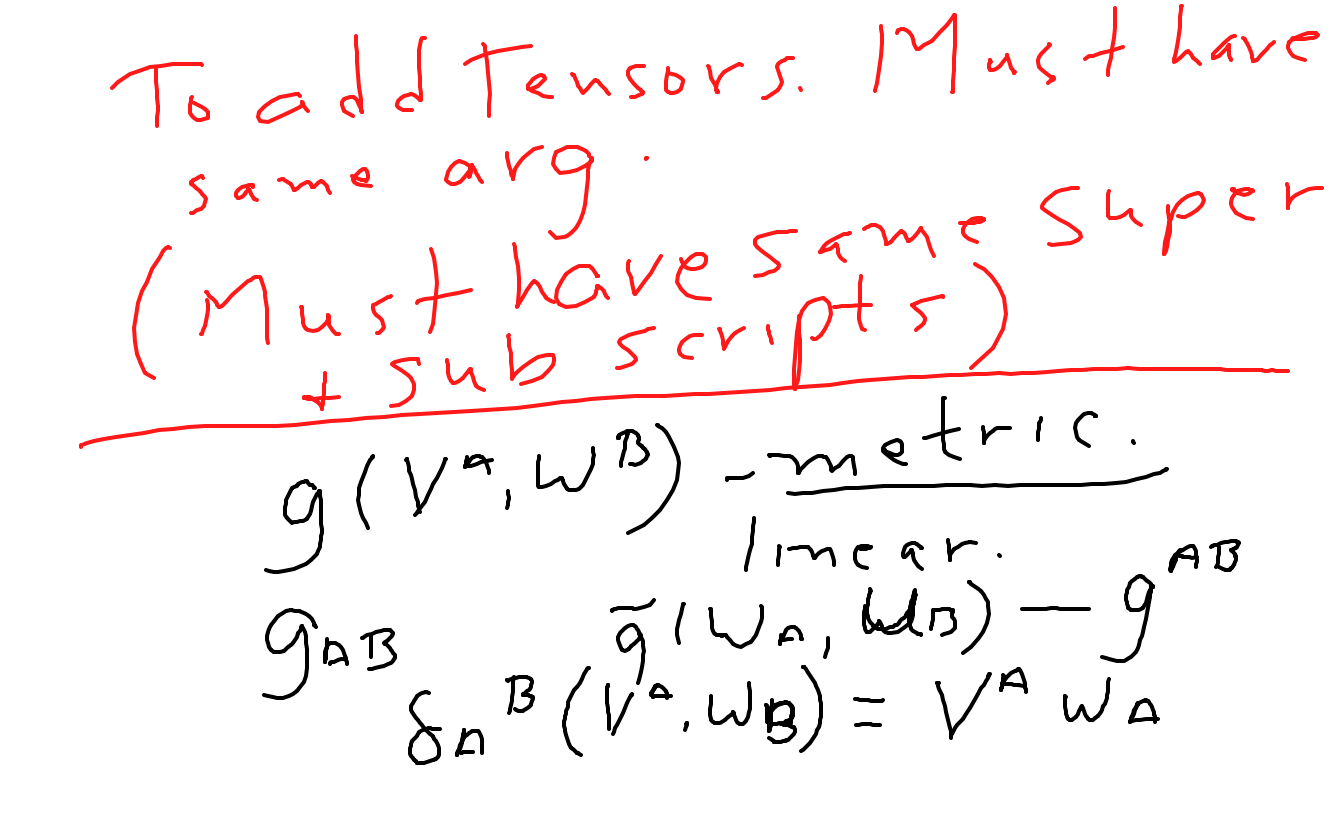 To add Tensors. Must have
same arg.
(Must have same super
+ sub scripts)
g(V^A, W^B) - metric.
linear.
g_AB g̃(W_A, W_B) — g^AB
δ_A^B (V^A, W_B) = V^A W_A